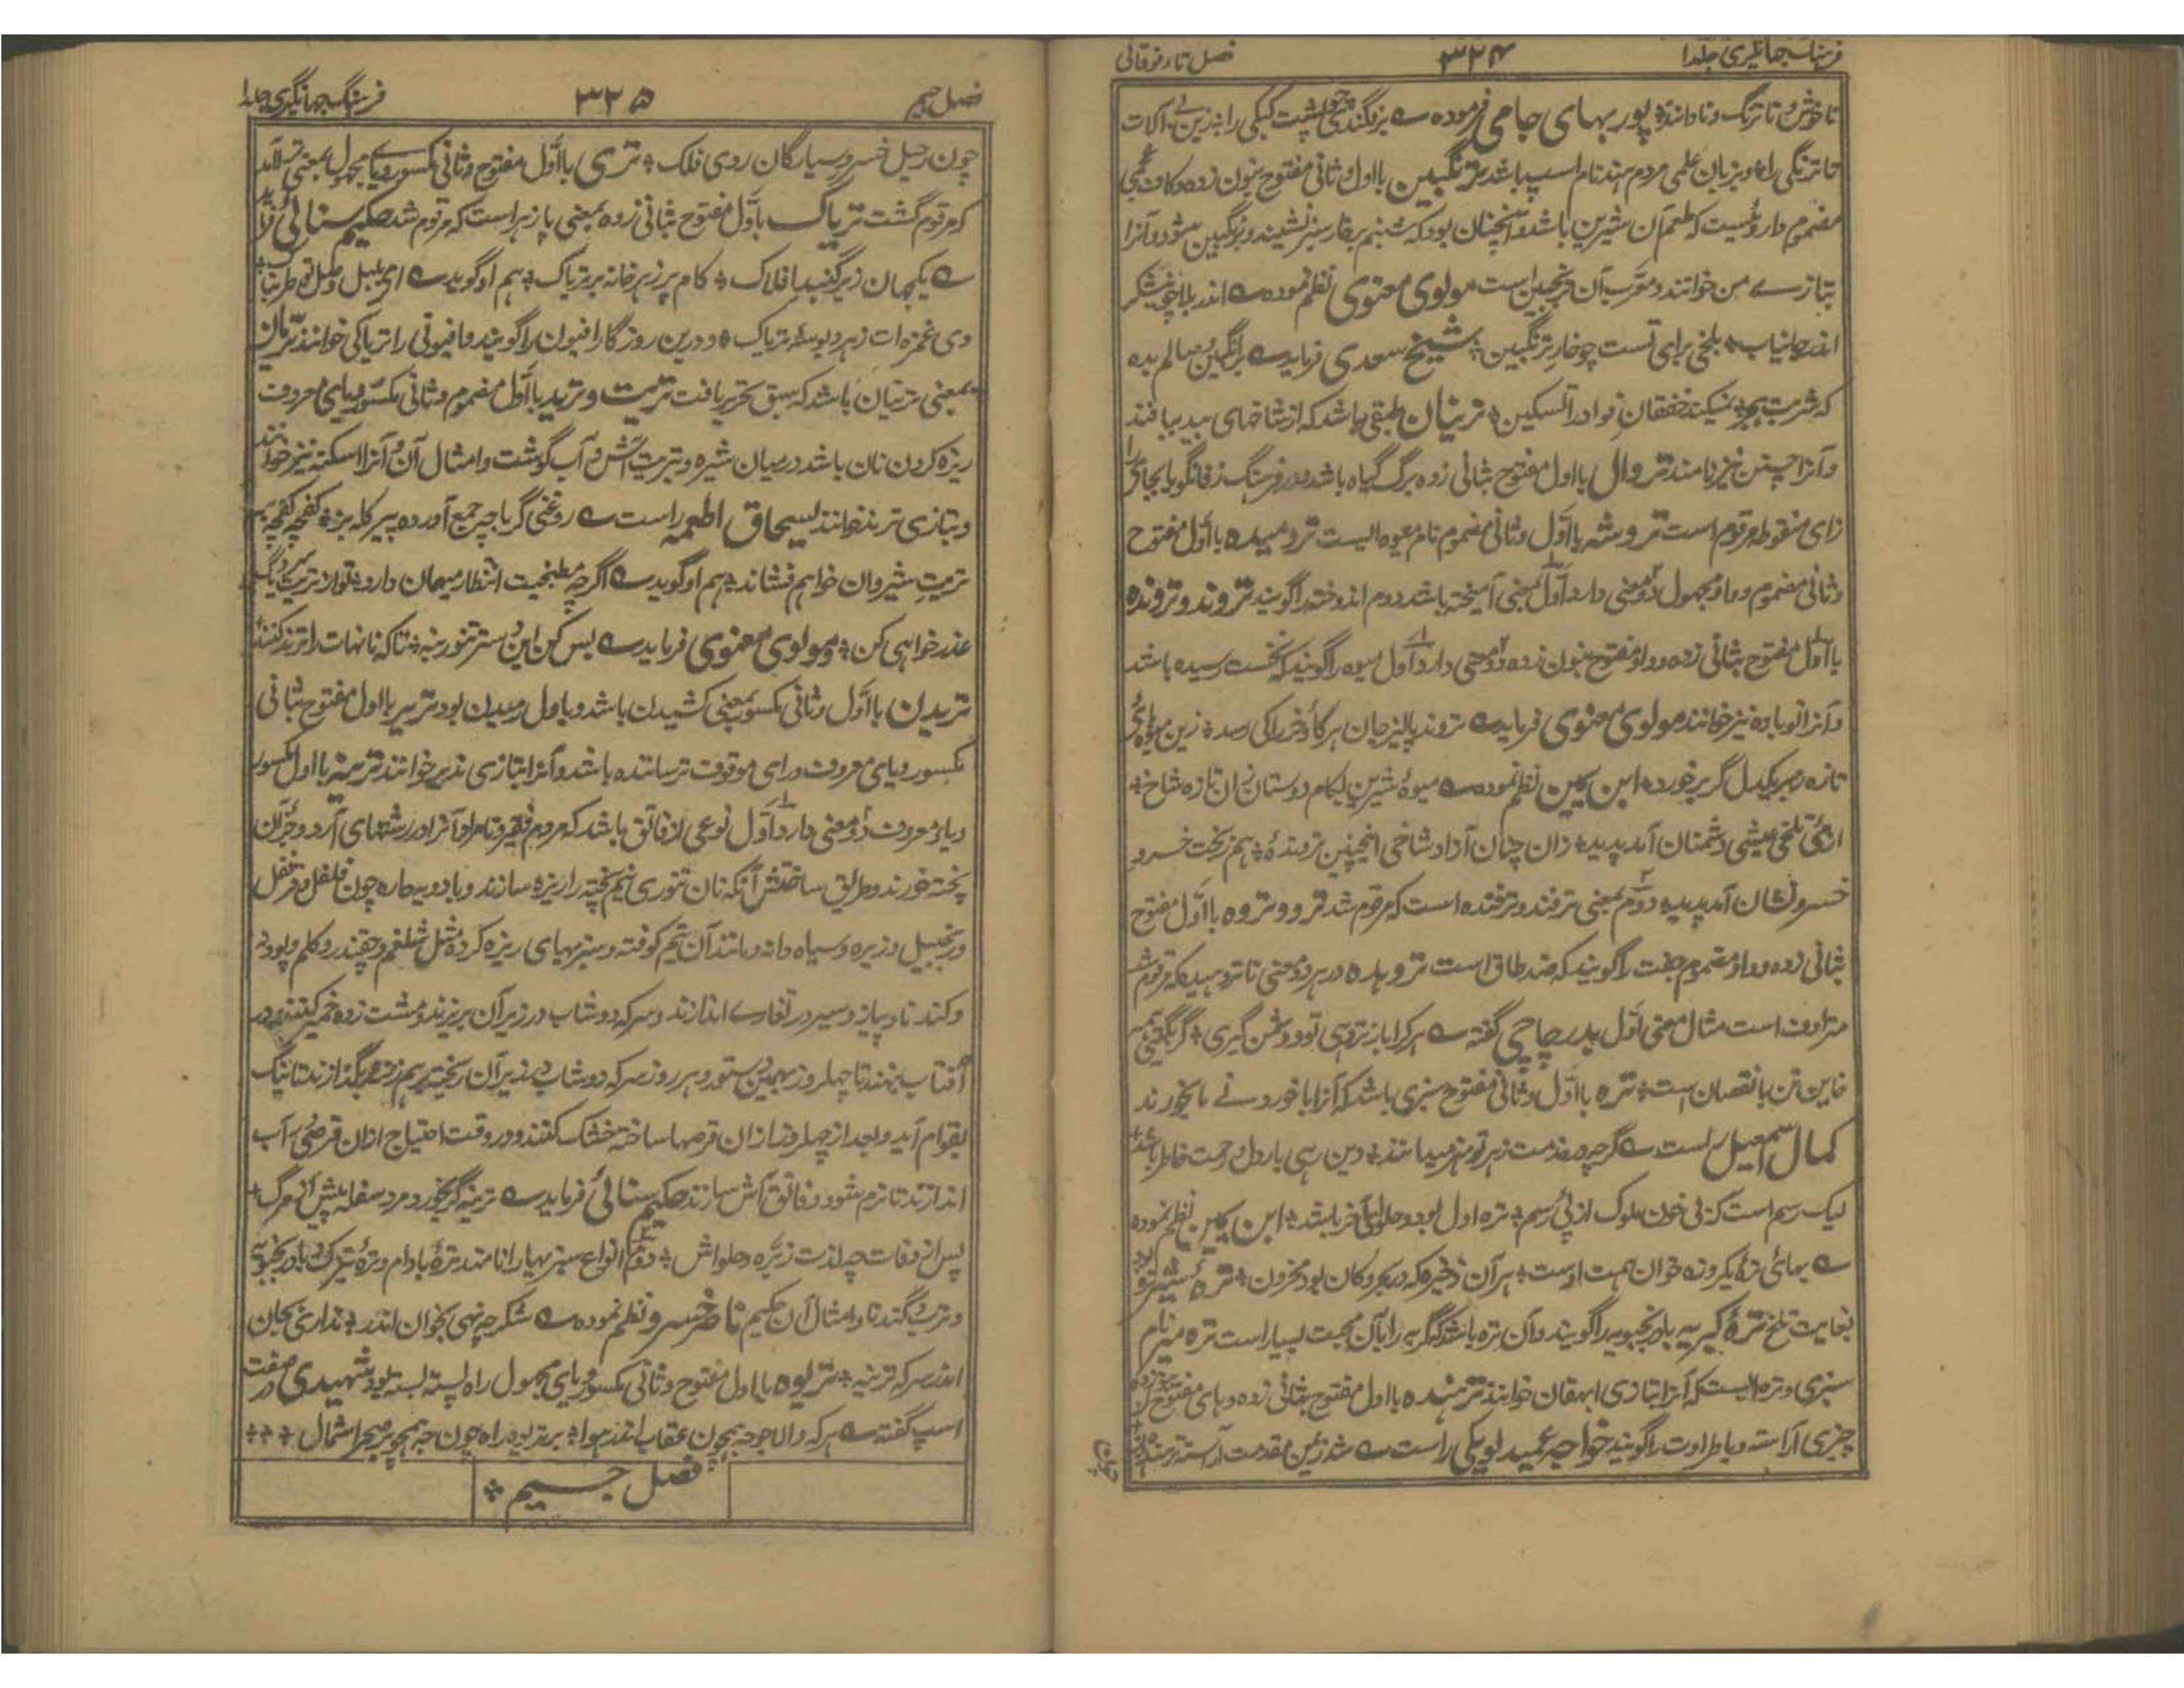 فرهنگ جهانگیری جلد۱
۳۲۴
فصل تاء فوقانی
تا خوش و تا ترنگ و نادانند پور بهای جامی فرموده بزفگندی پشت کبکی را بزین بی آلات
تا ترنگی را و بزبان علمی مردم هند نام اسپ باشد ترنگبین با اول و ثانی مفتوح بنون زده و کاف عجمی
مضموم داروئیست که طعم آن شیرین باشد و آنچنان بود که شبنم بر خار سبز نشیند و ترنگبین شود و آنرا
بتازے من خوانند و معرب آن ترنجبین است مولوی معنوی نظم نموده ے اندر بلا چو شکر
اندر جا نبات تلخی برای تست چو خار ترنگبین شیخ سعدی فرماید ے ترنگبین وصالم بده
که شربت هجر نمیکند خفقان فواد را تسکین ترنیان طبقی باشد که از شاخهای بید ببافند
و آنرا چپین نیز نامند تروال با اول مفتوح بثانی زده برگ گیاه باشد در فرهنگ زفانگویا بجای را
زای منقوطه مرقوم است تروشه با اول و ثانی مضموم نام میوه ایست ترومیده با اول مفتوح
و ثانی مضموم و واو مجهول دو معنی دارد اول بمعنی آمیخته باشد دوم اندوخته را گویند تروند و ترونده
با اول مفتوح بثانی زده و واو مفتوح بنون زده دو معنی دارد اول میوه را گویند که نخست رسیده باشد
و آنرا نوباوه نیز خوانند مولوی معنوی فرماید ے تروند پالیز جان هر گاؤ خر را کی رسد زین میوهای
تازه زیرک دل گر برخورد ابن یمین نظم نموده ے میوۀ شیرین بکام دوستان زان تازه شاخ
از پی تلخی عیشی دشمنان آمد پدید زان چنان آزاد شاخی اینچنین ترونده هم ز بخت خسرو
خسرو نشان آمد پدید دوم بمعنی ترفند و ترفنده است که مرقوم شد ترو و تروه با اول مفتوح
بثانی زده و واو مضموم جفت را گویند که ضد طاق است تروهده در هر دو معنی تا ترومیده که مرقوم شد
مترادف است مثال معنی اول بدر چاچی گفته ے
خاین تن با نقصان است تره با اول و ثانی مفتوح سبزی باشد که آنرا با خوردنے ها بخورند
کمال اسمعیل راست ے گرچه خدمت ز هر تو میدانند
لیک رسم است کز پی خوان ملوک از پی رسم تره اول بود و حلوا بآخر باشد ابن یمین نظم نموده
ے بهائی ترۀ یکروزه خوان همت اوست هر آن ذخیره که در بحر و کان بود مخزون
بغایت تلخ ترۀ گربه بادرنجبویه را گویند و آن تره باشد که گربه را با آن محبت بسیار است تره میره نام
سبزی و تره ایست که آنرا بتازی ایهقان خوانند ترهنده با اول مفتوح بثانی زده و های مفتوح بنون زده
چیزی آراسته و باطراوت را گویند خواجه عمید لویکی راست ے شد زمین مقدمت آراسته ترهنده
چون
فصل جیم
۳۲۵
فرهنگ جهانگیری جلد۱
چون رحیل خسرو سیارگان روی فلک تری با اول مفتوح و ثانی مکسور و یاے مجهول بمعنی
که مرقوم گشت تریاک با اول مفتوح بثانی زده بمعنی پازهر است که مرقوم شد حکیم سنائی
ے یکجهان زیر گنبد افلاک کام پر زهر خانه پر تریاک هم او گوید ے ای بلبل
وی غمزه ات زهر و بوسه تریاک و درین روزگار افیون را گویند و افیونی را تریاکی خوانند تریان
بمعنی ترنیان باشد که سبق تحریر یافت تریت و ترید با اول مضموم و ثانی مکسور و یای معروف
ریزه کردن نان باشد در میان شیره و تریت آش و آب گوشت و امثال آن و آنرا اسکنه نیز خوانند
و بتازی ثرید خوانند بسحاق اطعمه راست ے روغنی گر باچه جمع آورده پیر کله پز کفچه کفچه بر
تریت شیروان خواهم فشاند هم او گوید ے اگرچه مطبخیت انتظار میهمان دارد
عذر خواهی کن و مولوی معنوی فرماید ے بس کن این سر تنور بنه تاکه نانهات را ترند کنند
تریدن با اول و ثانی مکسور بمعنی کشیدن باشد و با اول رمیدن بود تریر با اول مفتوح بثانی
مکسور و یای معروف و رای موقوف ترسانده باشد و آنرا بتازی نذیر خوانند ترینه با اول مکسور
و یاء معروف دو معنی دارد اول نوعی از قاتق باشد که مردم فقیر و نامراد آنرا در رشتهای آرد و جز آن
پخته خورند و طریق ساختنش آنکه نان تنوری نیم پخته را ریزه سازند و با دویه حاره چون فلفل و قرنفل
و زنجبیل و زیره و سیاه دانه و مانند آن تخم کوفته و سبزیهای ریزه کرده مثل شلغم و چقندر و کلم و پودنه
و کند نا و پیاز و سیر در تغارے اندازند و سرکه دوشاب در زیر آن بریزند و مشت زده خمیر کنند و در
آفتاب بنهند تا چهل روز بهمین دستور و هر روز سرکه دوشاب در زیر آن ریخته برهم زنند و بگذارند تا نیک
بقوام آید و بعد از چهل روز از آن قرصها ساخته خشک کنند و در وقت احتیاج ازان قرصی در آب
اندازند تا نرم شود و قاتق آش سازند حکیم سنائی فرماید ے ترینه گر بخورد مرد سفله پیش از مرگ
پس از وفات چه لذت ز تره و حلواش دوم انواع سبزیها را نامند ترۀ بادام و ترۀ تیزک و بادرنجبویه
و ترب و گندنا و امثال آن حکیم ناصر خسرو نظم نموده ے شکر چه نهی بخوان اندر نداری بجان
اندر سرکه ترینه تریوه با اول مفتوح و ثانی مکسور و یای مجهول راه پسته بسته بود شهیدی در صفت
اسپ گفته ے هرکه والا چو همچون عقاب اندر هوا بر تریوه راه چون چه همچو بر صحرا شمال
فصل جیم